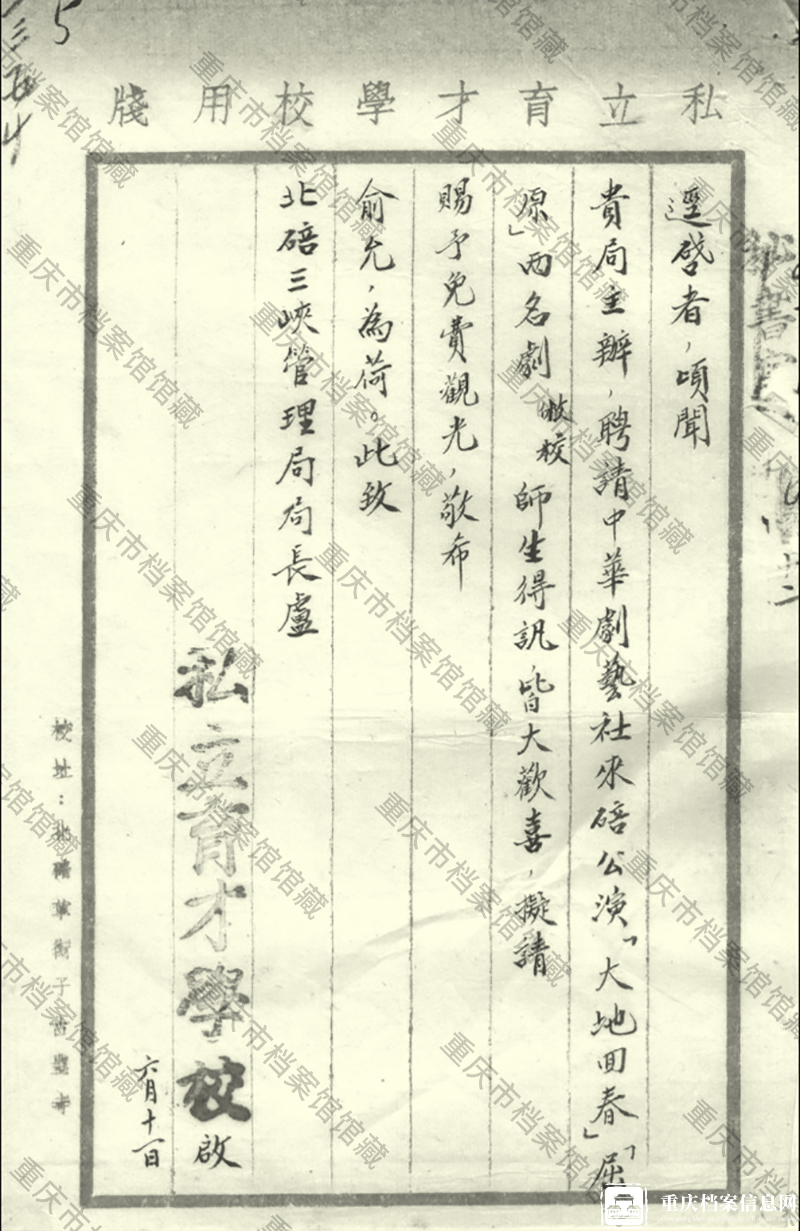 私立育才學校用牋
逕啓者，頃聞
貴局主辦，聘請中華劇藝社來碚公演「大地回春」「屈
原」兩名劇敝校師生得訊，皆大歡喜，擬請
賜予免費觀光，敬希
俞允，為荷。此致
北碚三峽管理局局長盧
私立育才學校啟
六月十一日
校址：北碚草街子古聖寺
重庆市档案馆馆藏
重庆档案信息网